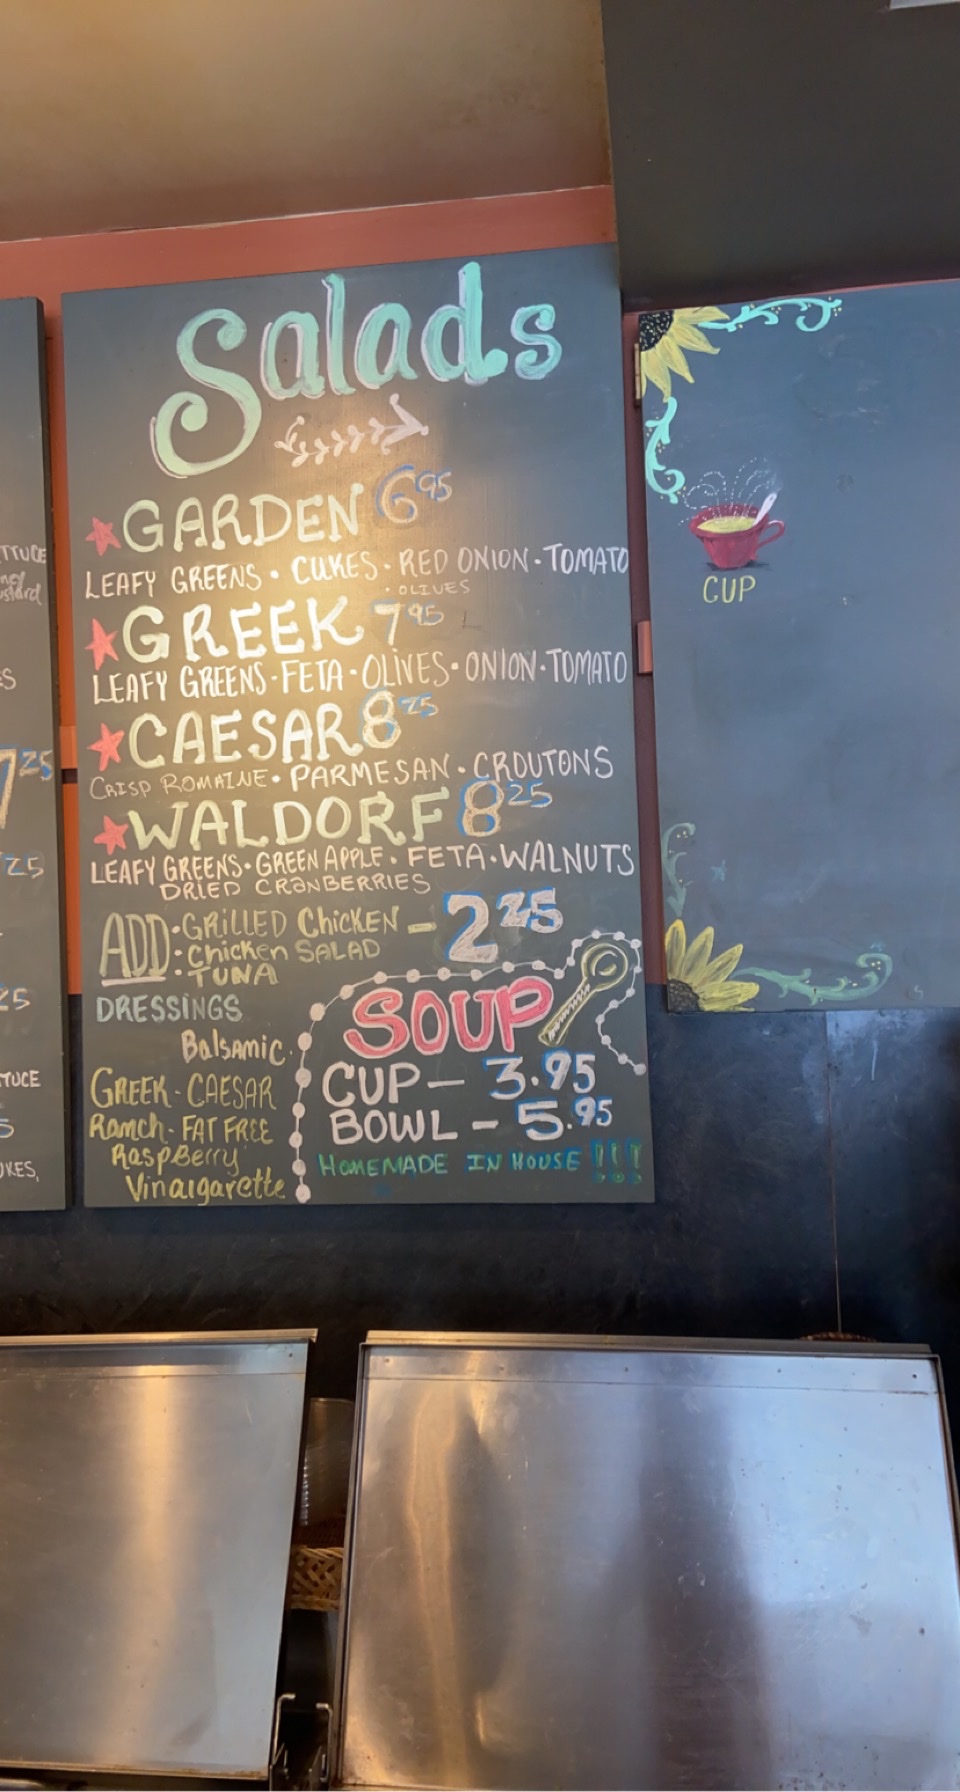 Salads
GARDEN 6.95
LEAFY GREENS • CUKES • RED ONION • TOMATO
• OLIVES
GREEK 7.95
LEAFY GREENS • FETA • OLIVES • ONION • TOMATO
CAESAR 8.25
CRISP ROMAINE • PARMESAN • CROUTONS
WALDORF 8.25
LEAFY GREENS • GREEN APPLE • FETA • WALNUTS
DRIED CRANBERRIES
ADD • GRILLED CHICKEN – 2.25
• CHICKEN SALAD
• TUNA
DRESSINGS
Balsamic
GREEK - CAESAR
Ranch - FAT FREE
RaspBerry
Vinaigarette
SOUP
CUP – 3.95
BOWL – 5.95
HOMEMADE IN HOUSE !!!
CUP
7.25